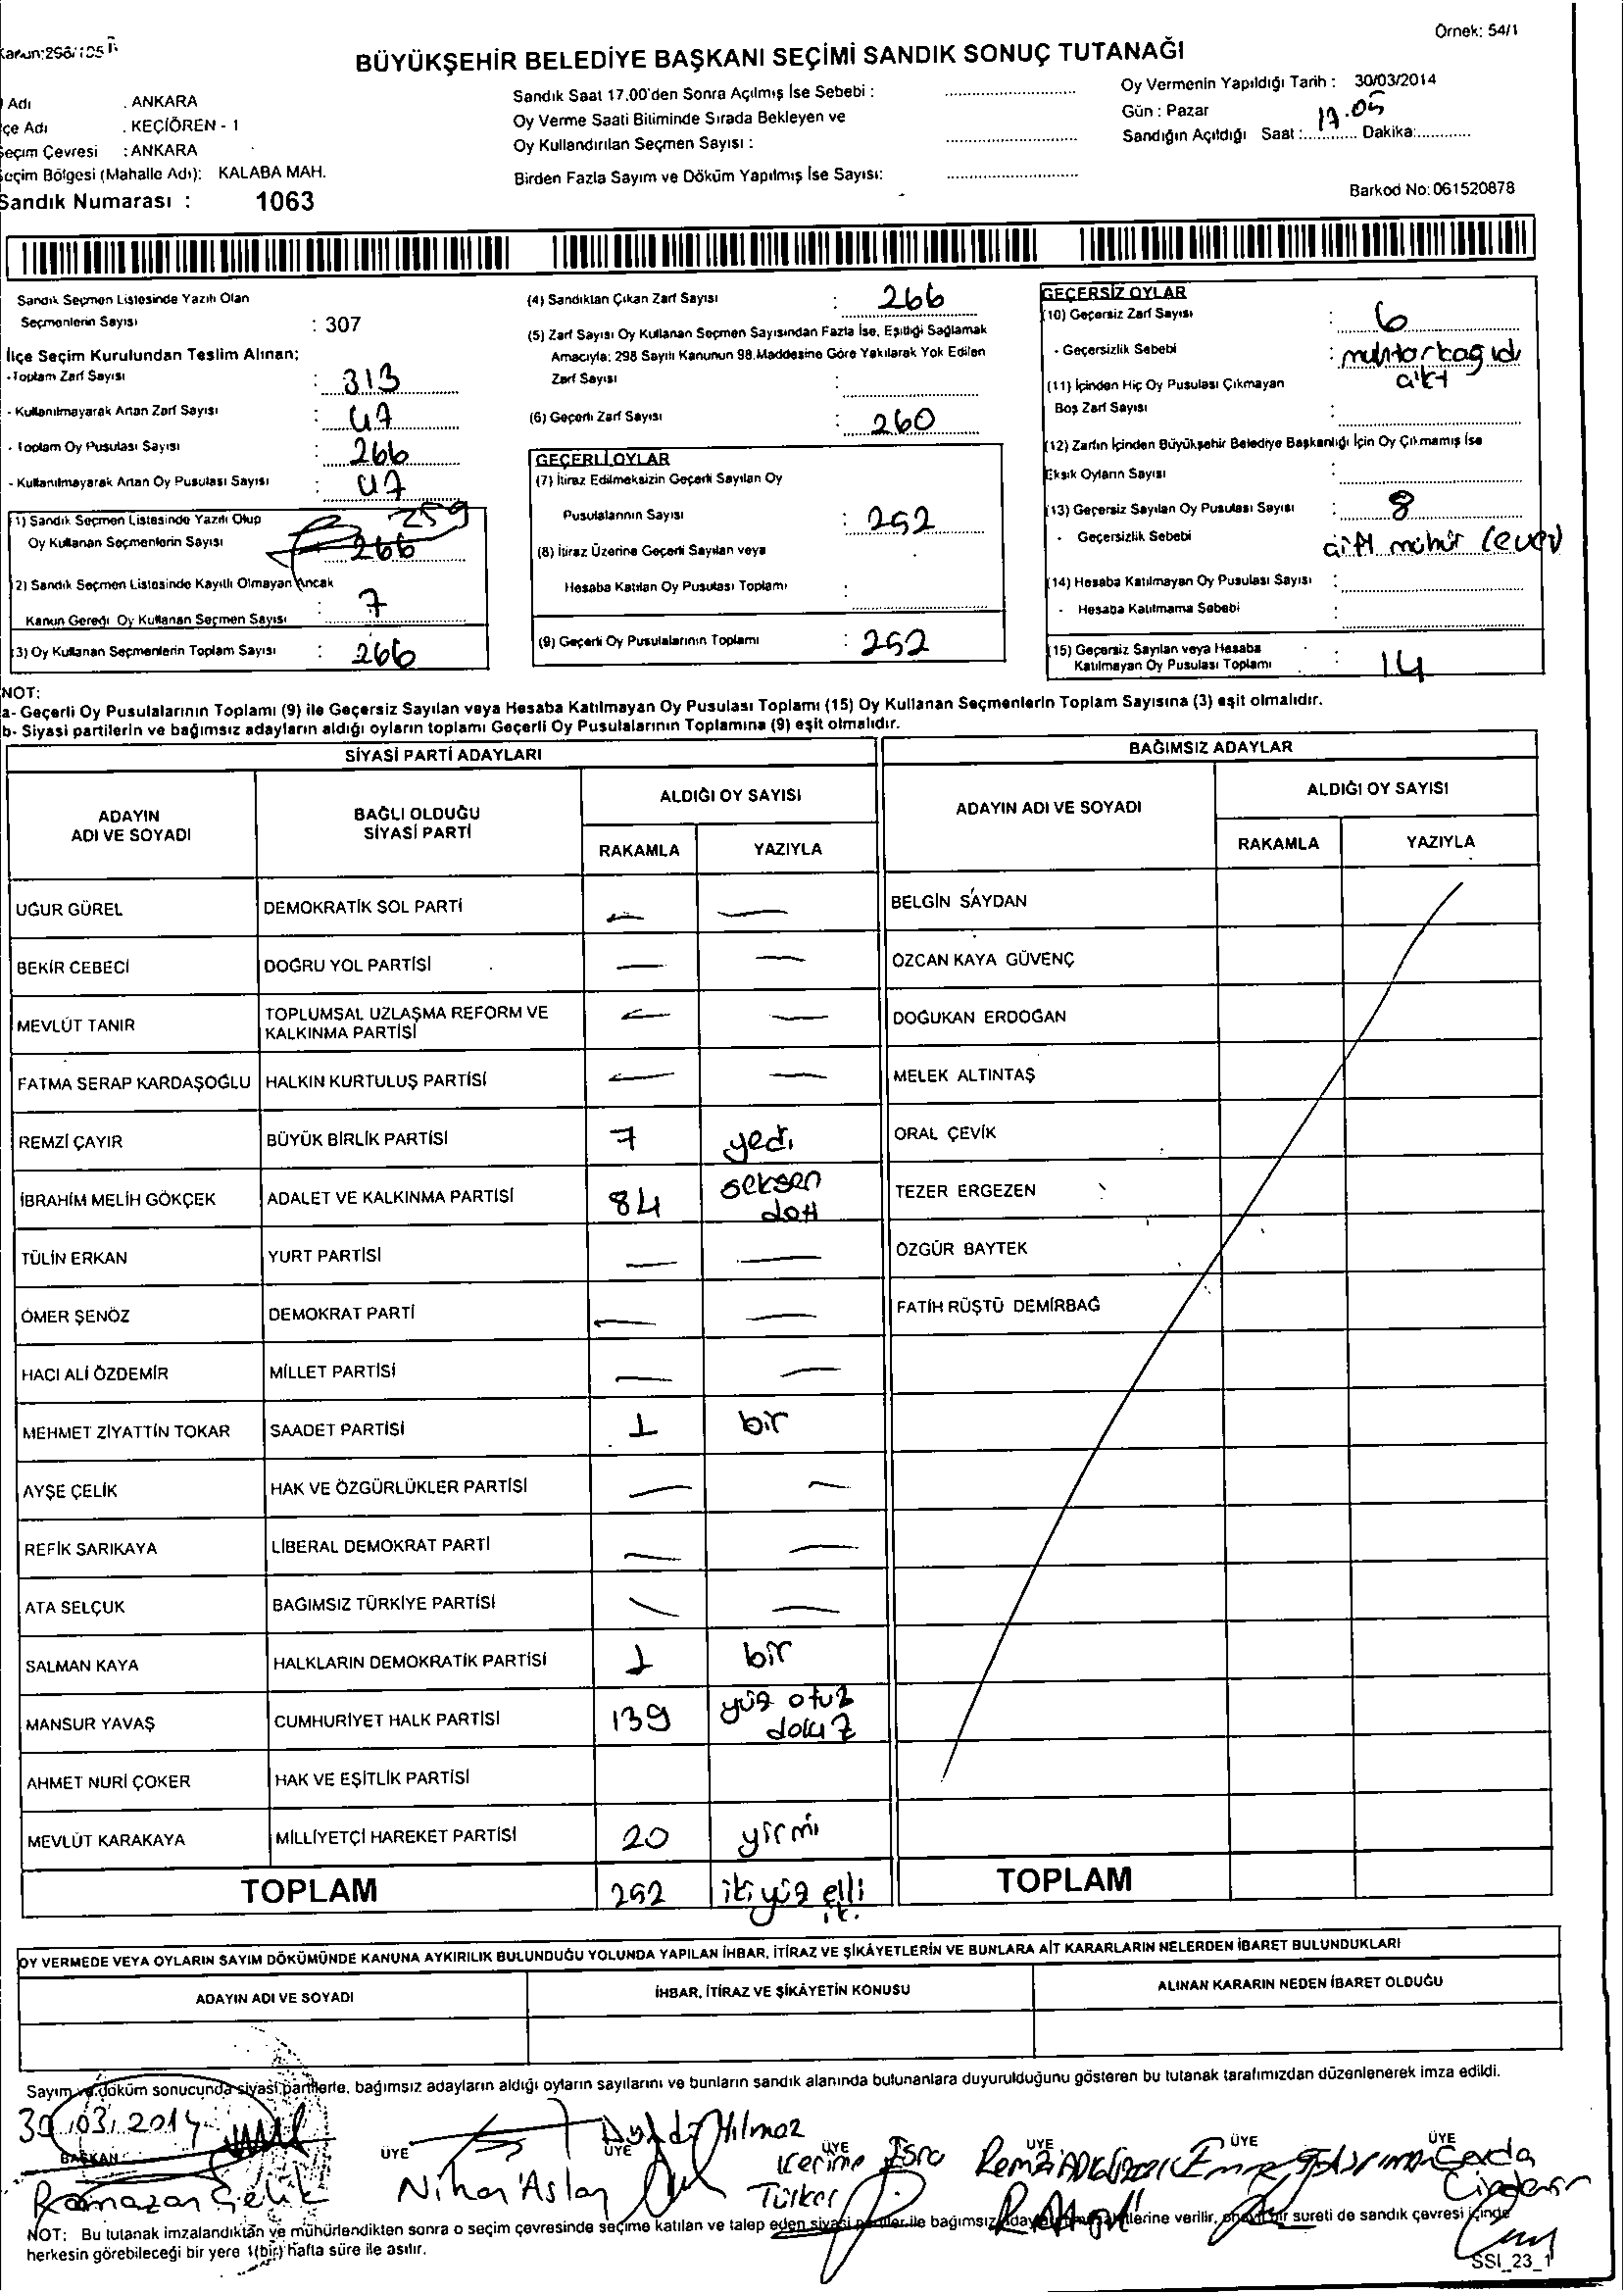 Örnek: 54/1
BÜYÜKŞEHİR BELEDİYE BAŞKANI SEÇİMİ SANDIK SONUÇ TUTANAĞI
Adı : ANKARA
çe Adı : KEÇİÖREN - 1
Seçim Çevresi : ANKARA
Seçim Bölgesi (Mahalle Adı): KALABA MAH.
Sandık Numarası : 1063
Sandık Saat 17.00'den Sonra Açılmış İse Sebebi :
Oy Verme Saati Bitiminde Sırada Bekleyen ve
Oy Kullandırılan Seçmen Sayısı :
Birden Fazla Sayım ve Döküm Yapılmış İse Sayısı:
Oy Vermenin Yapıldığı Tarih : 30/03/2014
Gün : Pazar
Sandığın Açıldığı Saat : 17.05 Dakika:
Barkod No: 061520878
Sandık Seçmen Listesinde Yazılı Olan
Seçmenlerin Sayısı : 307
İlçe Seçim Kurulundan Teslim Alınan;
-Toplam Zarf Sayısı : 313
- Kullanılmayarak Artan Zarf Sayısı : 47
- Toplam Oy Pusulası Sayısı : 266
- Kullanılmayarak Artan Oy Pusulası Sayısı : 47
(1) Sandık Seçmen Listesinde Yazılı Olup 259
Oy Kullanan Seçmenlerin Sayısı : 266
(2) Sandık Seçmen Listesinde Kayıtlı Olmayan Ancak
Kanun Gereği Oy Kullanan Seçmen Sayısı : 7
(3) Oy Kullanan Seçmenlerin Toplam Sayısı : 266
(4) Sandıktan Çıkan Zarf Sayısı : 266
(5) Zarf Sayısı Oy Kullanan Seçmen Sayısından Fazla İse, Eşitliği Sağlamak
Amacıyla; 298 Sayılı Kanunun 98.Maddesine Göre Yakılarak Yok Edilen
Zarf Sayısı :
(6) Geçerli Zarf Sayısı : 260
GEÇERLİ OYLAR
(7) İtiraz Edilmeksizin Geçerli Sayılan Oy
Pusulalarının Sayısı : 252
(8) İtiraz Üzerine Geçerli Sayılan veya
Hesaba Katılan Oy Pusulası Toplamı :
(9) Geçerli Oy Pusulalarının Toplamı : 252
GEÇERSİZ OYLAR
(10) Geçersiz Zarf Sayısı : 6
- Geçersizlik Sebebi : muhtar kagıdı
çıktı
(11) İçinden Hiç Oy Pusulası Çıkmayan
Boş Zarf Sayısı :
(12) Zarfın İçinden Büyükşehir Belediye Başkanlığı İçin Oy Çıkmamış İse
Eksik Oyların Sayısı :
(13) Geçersiz Sayılan Oy Pusulası Sayısı : 8
- Geçersizlik Sebebi : çift mühür (evet)
(14) Hesaba Katılmayan Oy Pusulası Sayısı :
- Hesaba Katılmama Sebebi :
(15) Geçersiz Sayılan veya Hesaba
Katılmayan Oy Pusulası Toplamı : 14
NOT:
a- Geçerli Oy Pusulalarının Toplamı (9) ile Geçersiz Sayılan veya Hesaba Katılmayan Oy Pusulası Toplamı (15) Oy Kullanan Seçmenlerin Toplam Sayısına (3) eşit olmalıdır.
b- Siyasi partilerin ve bağımsız adayların aldığı oyların toplamı Geçerli Oy Pusulalarının Toplamına (9) eşit olmalıdır.
SİYASİ PARTİ ADAYLARI
ADAYIN
ADI VE SOYADI
BAĞLI OLDUĞU
SİYASİ PARTİ
ALDIĞI OY SAYISI
RAKAMLA YAZIYLA
UĞUR GÜREL DEMOKRATİK SOL PARTİ — —
BEKİR CEBECİ DOĞRU YOL PARTİSİ — —
MEVLÜT TANIR TOPLUMSAL UZLAŞMA REFORM VE
KALKINMA PARTİSİ — —
FATMA SERAP KARDAŞOĞLU HALKIN KURTULUŞ PARTİSİ — —
REMZİ ÇAYIR BÜYÜK BİRLİK PARTİSİ 7 yedi
İBRAHİM MELİH GÖKÇEK ADALET VE KALKINMA PARTİSİ 84 seksen
dört
TÜLİN ERKAN YURT PARTİSİ — —
ÖMER ŞENÖZ DEMOKRAT PARTİ — —
HACI ALİ ÖZDEMİR MİLLET PARTİSİ — —
MEHMET ZİYATTİN TOKAR SAADET PARTİSİ 1 bir
AYŞE ÇELİK HAK VE ÖZGÜRLÜKLER PARTİSİ — —
REFİK SARIKAYA LİBERAL DEMOKRAT PARTİ — —
ATA SELÇUK BAĞIMSIZ TÜRKİYE PARTİSİ — —
SALMAN KAYA HALKLARIN DEMOKRATİK PARTİSİ 1 bir
MANSUR YAVAŞ CUMHURİYET HALK PARTİSİ 139 yüz otuz
dokuz
AHMET NURİ ÇOKER HAK VE EŞİTLİK PARTİSİ
MEVLÜT KARAKAYA MİLLİYETÇİ HAREKET PARTİSİ 20 yirmi
TOPLAM 252 iki yüz elli
iki
BAĞIMSIZ ADAYLAR
ADAYIN ADI VE SOYADI
ALDIĞI OY SAYISI
RAKAMLA YAZIYLA
BELGİN SAYDAN
ÖZCAN KAYA GÜVENÇ
DOĞUKAN ERDOĞAN
MELEK ALTINTAŞ
ORAL ÇEVİK
TEZER ERGEZEN
ÖZGÜR BAYTEK
FATİH RÜŞTÜ DEMİRBAĞ
TOPLAM
OY VERMEDE VEYA OYLARIN SAYIM DÖKÜMÜNDE KANUNA AYKIRILIK BULUNDUĞU YOLUNDA YAPILAN İHBAR, İTİRAZ VE ŞİKÂYETLERİN VE BUNLARA AİT KARARLARIN NELERDEN İBARET BULUNDUKLARI
ADAYIN ADI VE SOYADI İHBAR, İTİRAZ VE ŞİKÂYETİN KONUSU ALINAN KARARIN NEDEN İBARET OLDUĞU
Sayım ve döküm sonucunda siyasi partilerle, bağımsız adayların aldığı oyların sayılarını ve bunların sandık alanında bulunanlara duyurulduğunu gösteren bu tutanak tarafımızdan düzenlenerek imza edildi.
30/03/2014
BAŞKAN ÜYE ÜYE ÜYE ÜYE ÜYE ÜYE
Ramazan Çelik
Nihar Aslan
Yılmaz
Kerime Esra
Türker
NOT: Bu tutanak imzalandıktan ve mühürlendikten sonra o seçim çevresinde seçime katılan ve talep eden siyasi partiler ile bağımsız verilir, bir sureti de sandık çevresi içinde
herkesin görebileceği bir yere 1(bir) hafta süre ile asılır.
SSI_23_1